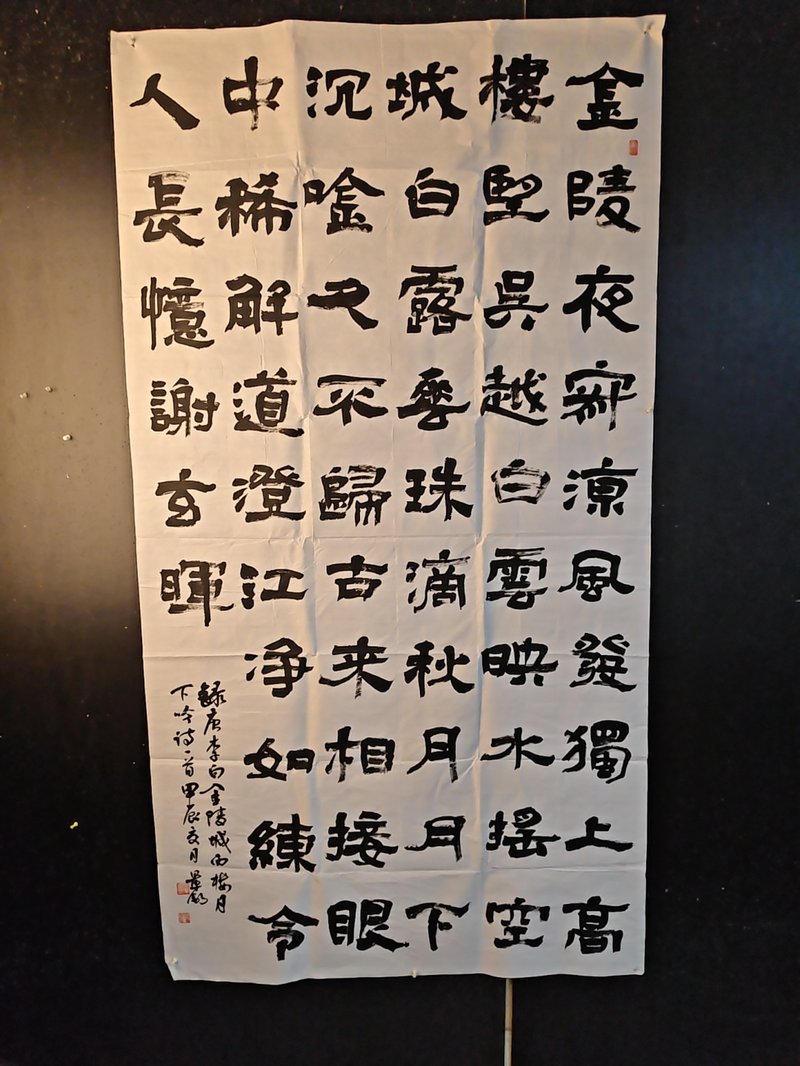 金陵夜寂涼風發獨上高
樓望吳越白雲映水搖空
城白露垂珠滴秋月月下
沉唫久不歸古来相接眼
中稀解道澄江净如練令
人長憶謝玄暉
録唐李白金陵城西楼月
下吟诗一首甲辰夏月